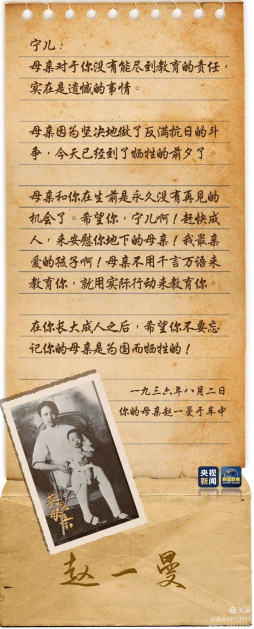 宁儿：
母亲对于你没有能尽到教育的责任，
实在是遗憾的事情。
母亲因为坚决地做了反满抗日的斗
争，今天已经到了牺牲的前夕了。
母亲和你在生前是永久没有再见的
机会了。希望你，宁儿啊！赶快成
人，来安慰你地下的母亲！我最亲
爱的孩子啊！母亲不用千言万语来
教育你，就用实际行动来教育你。
在你长大成人之后，希望你不要忘
记你的母亲是为国而牺牲的！
一九三六年八月二日
你的母亲赵一曼于车中
央视
新闻
赵一曼